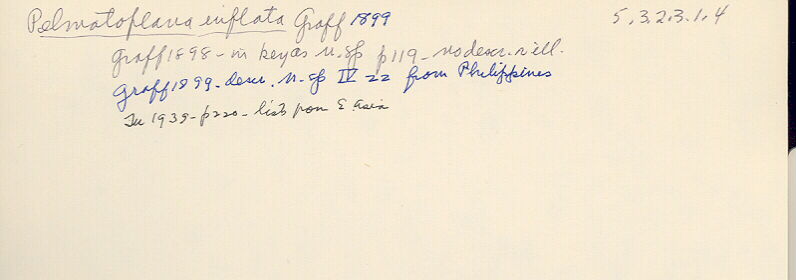 Pelmatoplana inflata Graff 1899 5.3.2.3.1.4
Graff 1898 - in key as n.sp p119 - no descr. n ill.
Graff 1899 - descr. n.sp IV 22 from Philippines
Tu 1939 - p220 - lists from E Asia